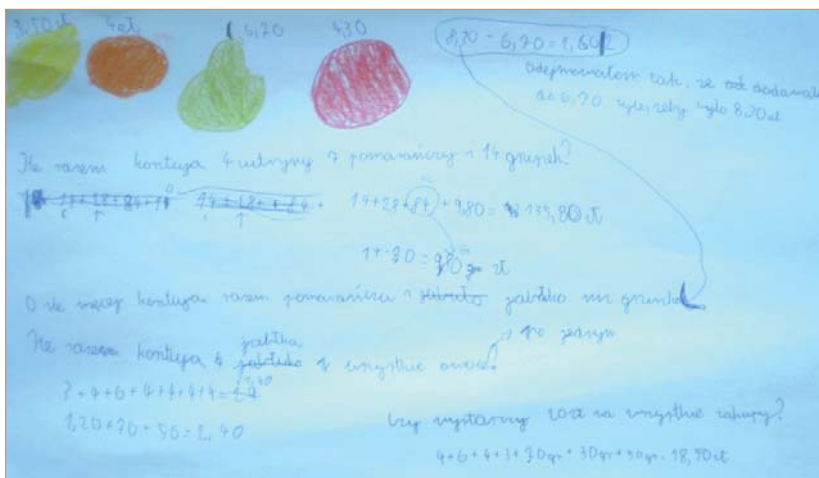 3,50 zł 4 zł 6,70 4,30
8,30 - 6,70 = 1,60
odejmowałem tak, że dodawałem
do 6,70 tyle, żeby było 8,30 zł
Ile razem kosztują 4 cytryny 7 pomarańczy i 14 gruszek?
14+28+84+ 14+28+84+ 14+28+84+9,80=135,80 zł
O ile więcej kosztują razem pomarańcza i jabłko niż gruszka
po jednym
Ile razem kosztują 4 jabłka i wszystkie owoce?
1,20+70+50=2,40
Czy wystarczy 20 zł na wszystkie zakupy?
4+6+4+3+70gr+30gr+50gr=18,50 zł